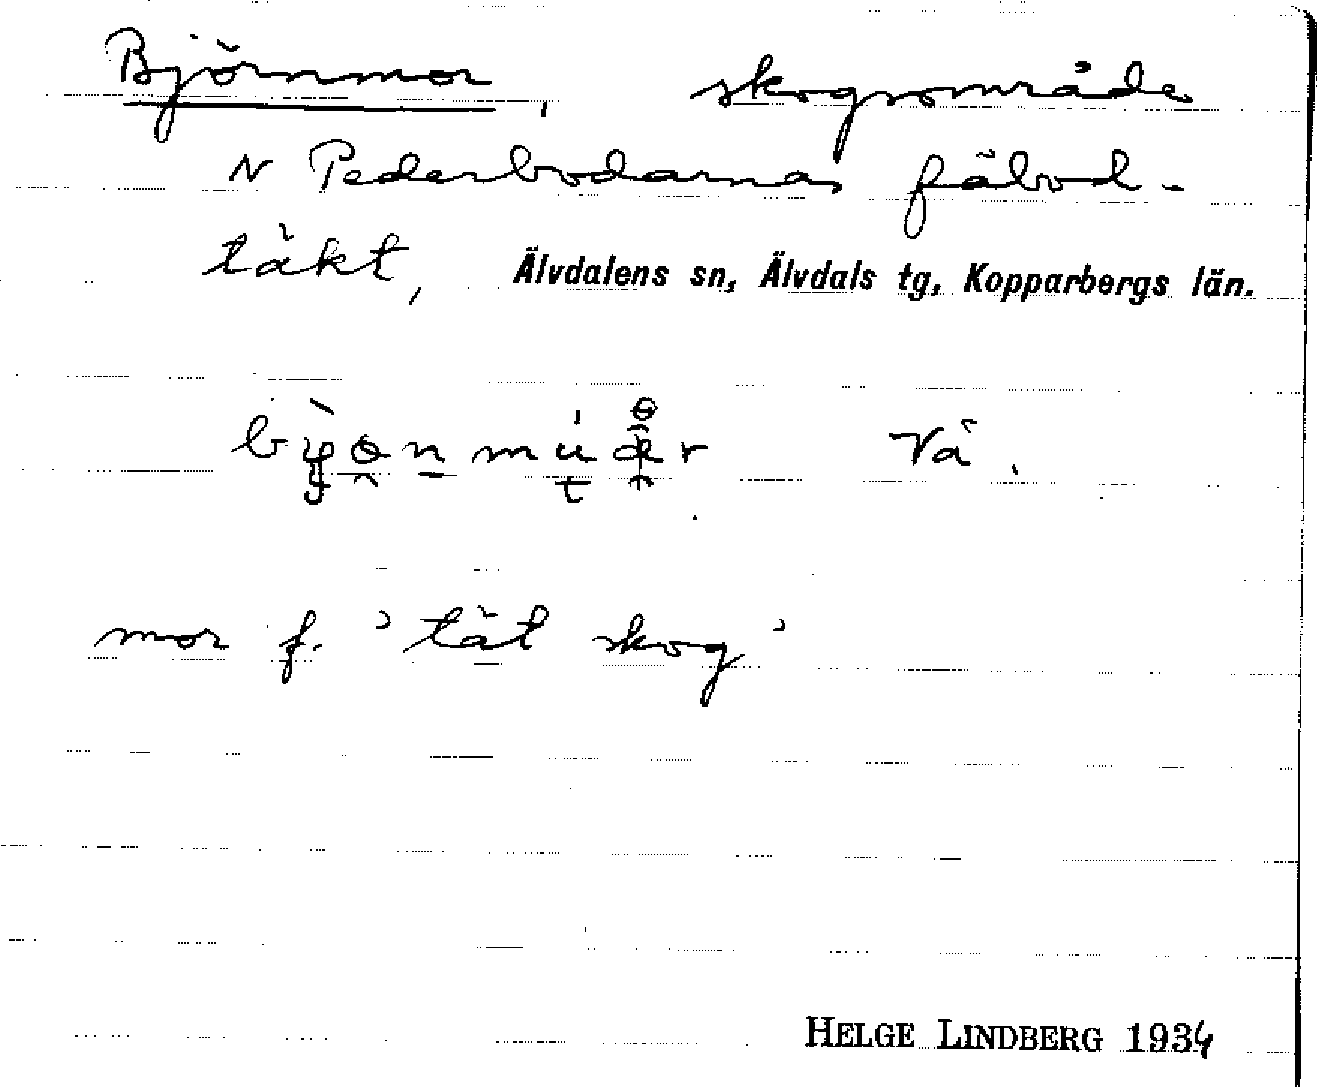 Björnmor, skogsområde
N Pederbodarnas fäbod-
täkt, Älvdalens sn, Älvdals tg, Kopparbergs län.
Vä.
mor f. 'tät skog'
HELGE LINDBERG 1934